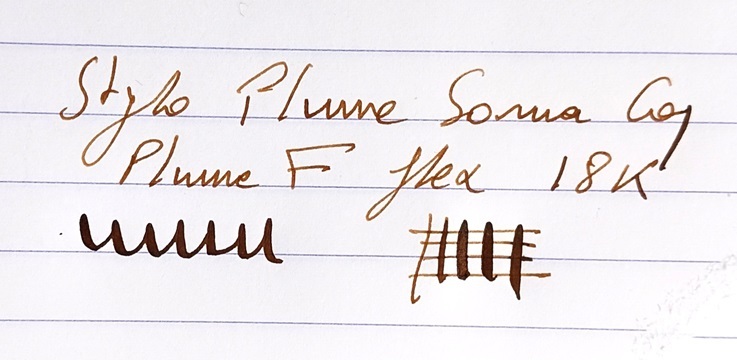 Stylo Plume Soma
Plume F flex 18K